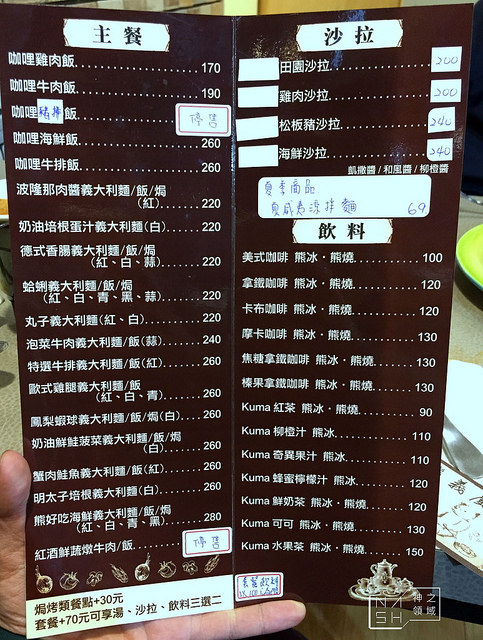 主餐
咖哩雞肉飯 170
咖哩牛肉飯 190
咖哩豬排飯 停售
咖哩海鮮飯 260
咖哩牛排飯 260
波隆那肉醬義大利麵/飯/焗
(紅) 220
奶油培根蛋汁義大利麵(白) 220
德式香腸義大利麵/飯/焗
(紅、白、蒜) 220
蛤蜊義大利麵/飯/焗
(紅、白、青、黑、蒜) 220
丸子義大利麵(紅、白) 220
泡菜牛肉義大利麵/飯(蒜) 240
特選牛排義大利麵/飯(紅) 260
歐式雞腿義大利麵/飯
(紅、白、青) 260
鳳梨蝦球義大利麵/飯/焗(白) 260
奶油鮮鮭菠菜義大利麵/飯/焗
(白) 260
蟹肉鮭魚義大利麵/飯(紅) 260
明太子培根義大利麵(白) 260
熊好吃海鮮義大利麵/飯/焗
(紅、白、青、黑) 280
紅酒鮮蔬燉牛肉/飯 停售
焗烤類餐點+30元
套餐+70元可享湯、沙拉、飲料三選二
沙拉
田園沙拉 200
雞肉沙拉 200
松板豬沙拉 240
海鮮沙拉 240
凱撒醬/和風醬/柳橙醬
夏季商品
夏威夷涼拌麵 69
飲料
美式咖啡 熊冰·熊燒 100
拿鐵咖啡 熊冰·熊燒 120
卡布咖啡 熊冰·熊燒 120
摩卡咖啡 熊冰·熊燒 130
焦糖拿鐵咖啡 熊冰·熊燒 130
榛果拿鐵咖啡 熊冰·熊燒 130
Kuma 紅茶 熊冰·熊燒 90
Kuma 柳橙汁 熊冰 110
Kuma 奇異果汁 熊冰 110
Kuma 蜂蜜檸檬汁 熊冰 120
Kuma 鮮奶茶 熊冰·熊燒 120
Kuma 可可 熊冰·熊燒 130
Kuma 水果茶 熊冰·熊燒 150
NASH 神之
領域